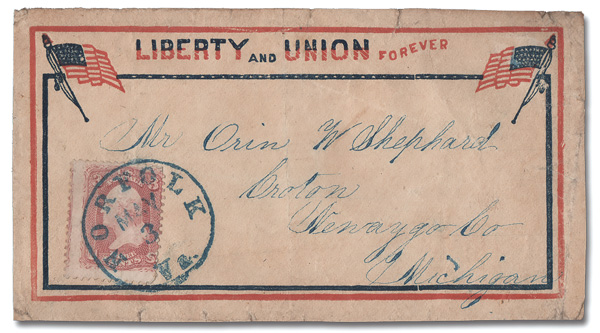 LIBERTY AND UNION FOREVER
Mr Orin W Shephard
Croton
Newaygo Co
Michigan
NORFOLK
3
Va.